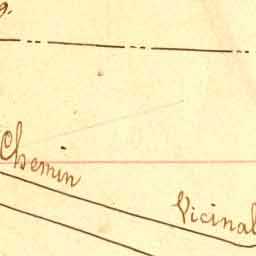 9.
Chemin
Vicinal